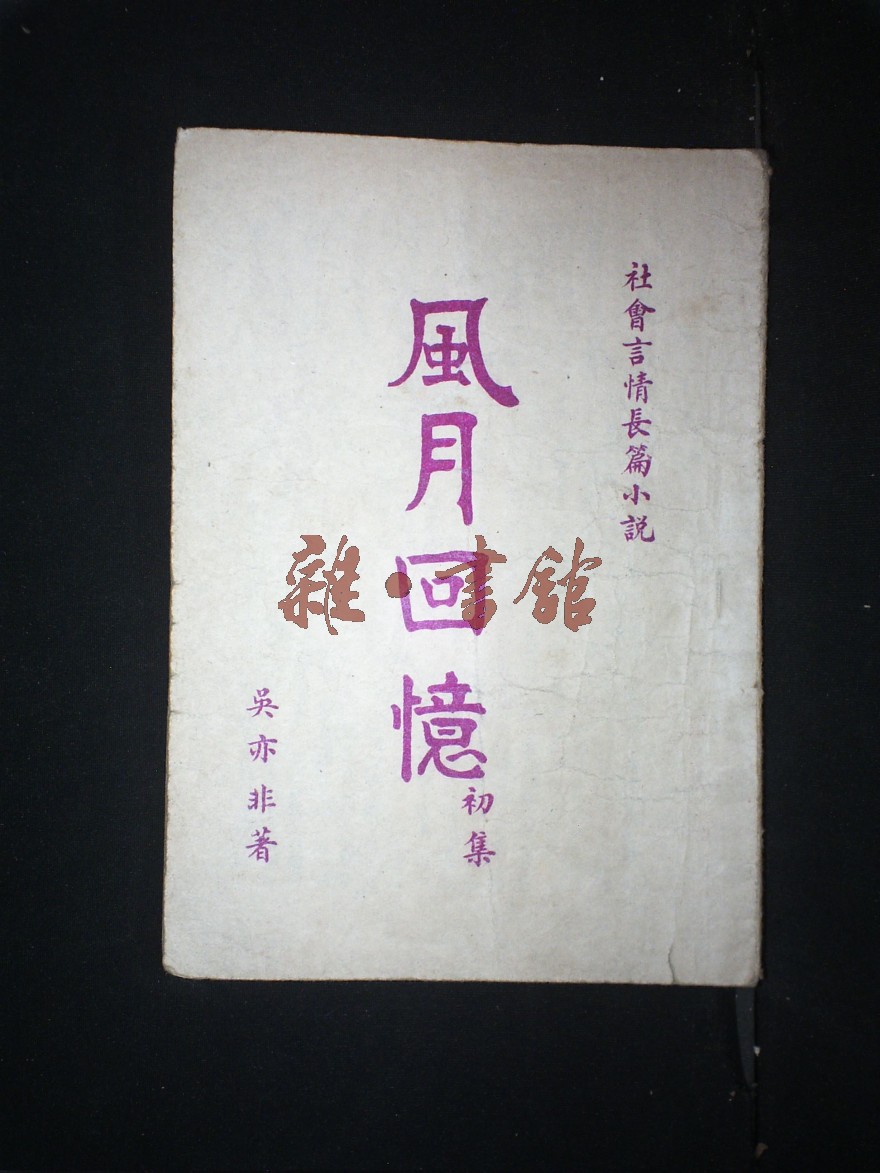 社會言情長篇小説
風月回憶
初集
吳亦非著
雜·書館